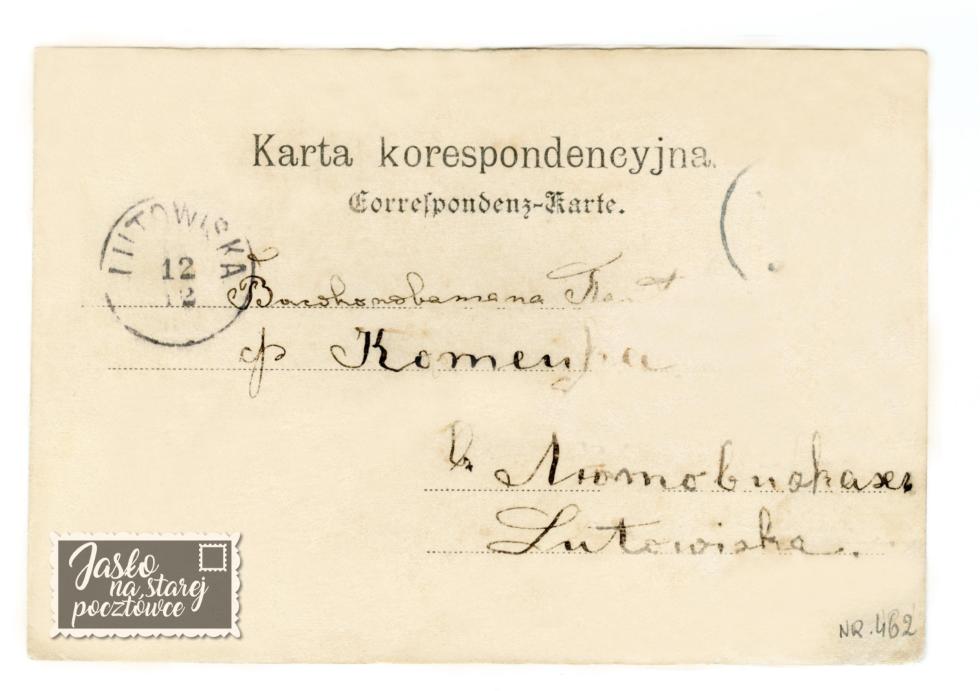 Karta korespondencyjna.
Correspondenz-Karte.
LUTOWISKA
12
12
Высокоповажана
въ Лютовискахъ
Lutowiska.
Jasło
na starej
pocztówce
NR. 462